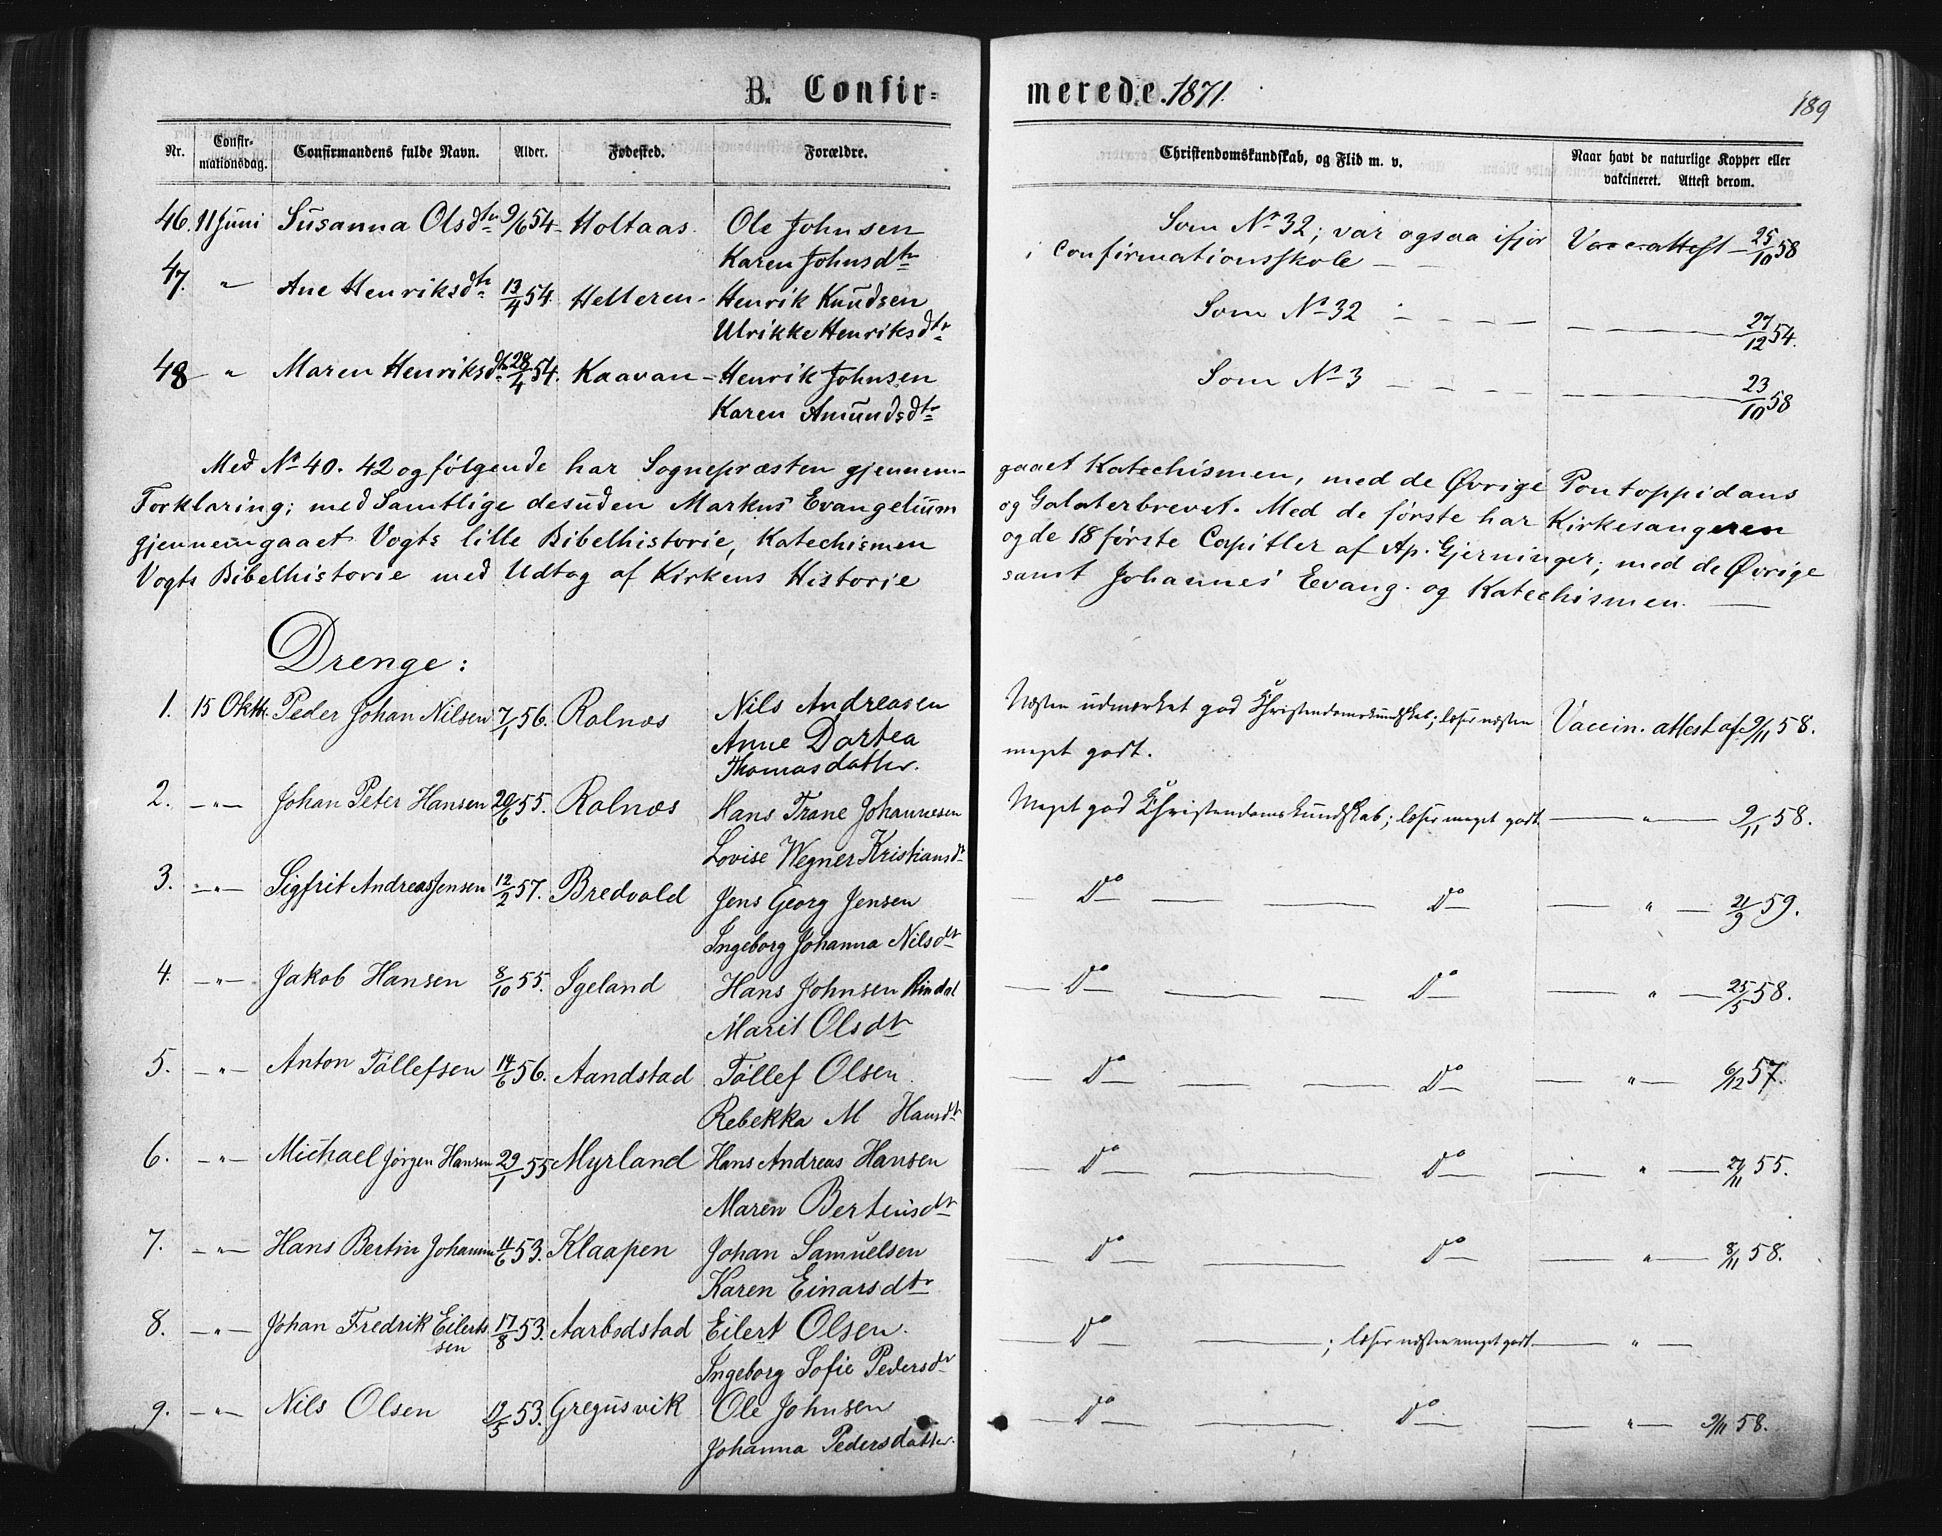 B. Confir-
merede. 1871.
189
Nr. Confir-mationsdag. Confirmandens fulde Navn. Alder. Fødested. Forældre.
Christendomskundskab, og Flid m. v. Naar havt de naturlige Kopper eller vakcineret. Attest derom.
46. 11 Juni Susanna Olsdtr 9/6 54 Holtaas. Ole Johnsen
Karen Johnsdtr
Som No 32; var ogsaa ifjor Vaccattest 25/10 58
i Confirmationsskole —
47. " Ane Henriksdtr 13/4 54 Helleren Henrik Knudsen
Ulrikke Henriksdtr
Som No 32 — — — 27/12 54.
48 " Maren Henriksdtr 28/4 54. Kaavan Henrik Johnsen
Karen Amundsdtr
Som No 3 — — — 23/10 58
Med No 40. 42 og følgende har Sognepræsten gjennem-
gaaet Katechismen, med de Øvrige Pontoppidans
Forklaring; med Samtlige desuden Markus Evangelium
og Galaterbrevet. Med de første har Kirkesangeren
gjennemgaaet Vogts lille Bibelhistorie, Katechismen
og de 18 første Capitler af Ap. Gjerninger; med de Øvrige
Vogts Bibelhistorie med Udtog af Kirkens Historie
samt Johannes Evang. og Katechismen. —
Drenge:
1. 15 Oktbr. Peder Johan Nilsen 7/1 56. Rolnæs Nils Andreasen
Anne Dortea
Thomasdatter.
Næsten udmærket god Christendomskundskab; læser næsten Vaccin. attest af 9/11 58.
meget godt.
2. —"— Johan Peter Hansen 20/6 55. Rolnæs Hans Trane Johannesen
Lovise Wegner Kristiansdtr
Meget god Christendomskundskab; læser meget godt. — " — 9/11 58.
3. —"— Sigfrit Andreas Jensen 12/2 57. Bredvold Jens Georg Jensen
Ingeborg Johanna Nilsdtr
— Do — — — Do — — " — 21/9 59.
4. —"— Jakob Hansen 8/10 55. Igeland Hans Johnsen Rindal
Marit Olsdtr
— Do — — — Do — — " — 25/5 58.
5. —"— Anton Tollefsen 14/6 56. Aandstad Tollef Olsen
Rebekka M Hansdtr
— Do — — — Do — — " — 6/12 57.
6. —"— Michael Jørgen Hansen 29/1 55 Myrland Hans Andreas Hansen
Maren Bertinsdtr
— Do — — Do — — " — 21/11 55.
7. —"— Hans Bertin Johannsen 11/6 53. Klaapen Johan Samuelsen
Karen Einarsdtr
— Do — — Do — — " — 8/11 58.
8. —"— Johan Fredrik Eilerts 17/8 53. Aarbodstad Eilert Olsen.
sen
Ingeborg Sofie Pedersdtr
— Do — —; læser næsten meget godt. — " —
9. —"— Nils Olsen 12/5 53. Gregusvik Ole Johnsen
Johanna Pedersdatter.
— Do — — Do — — " — 9/11 58.